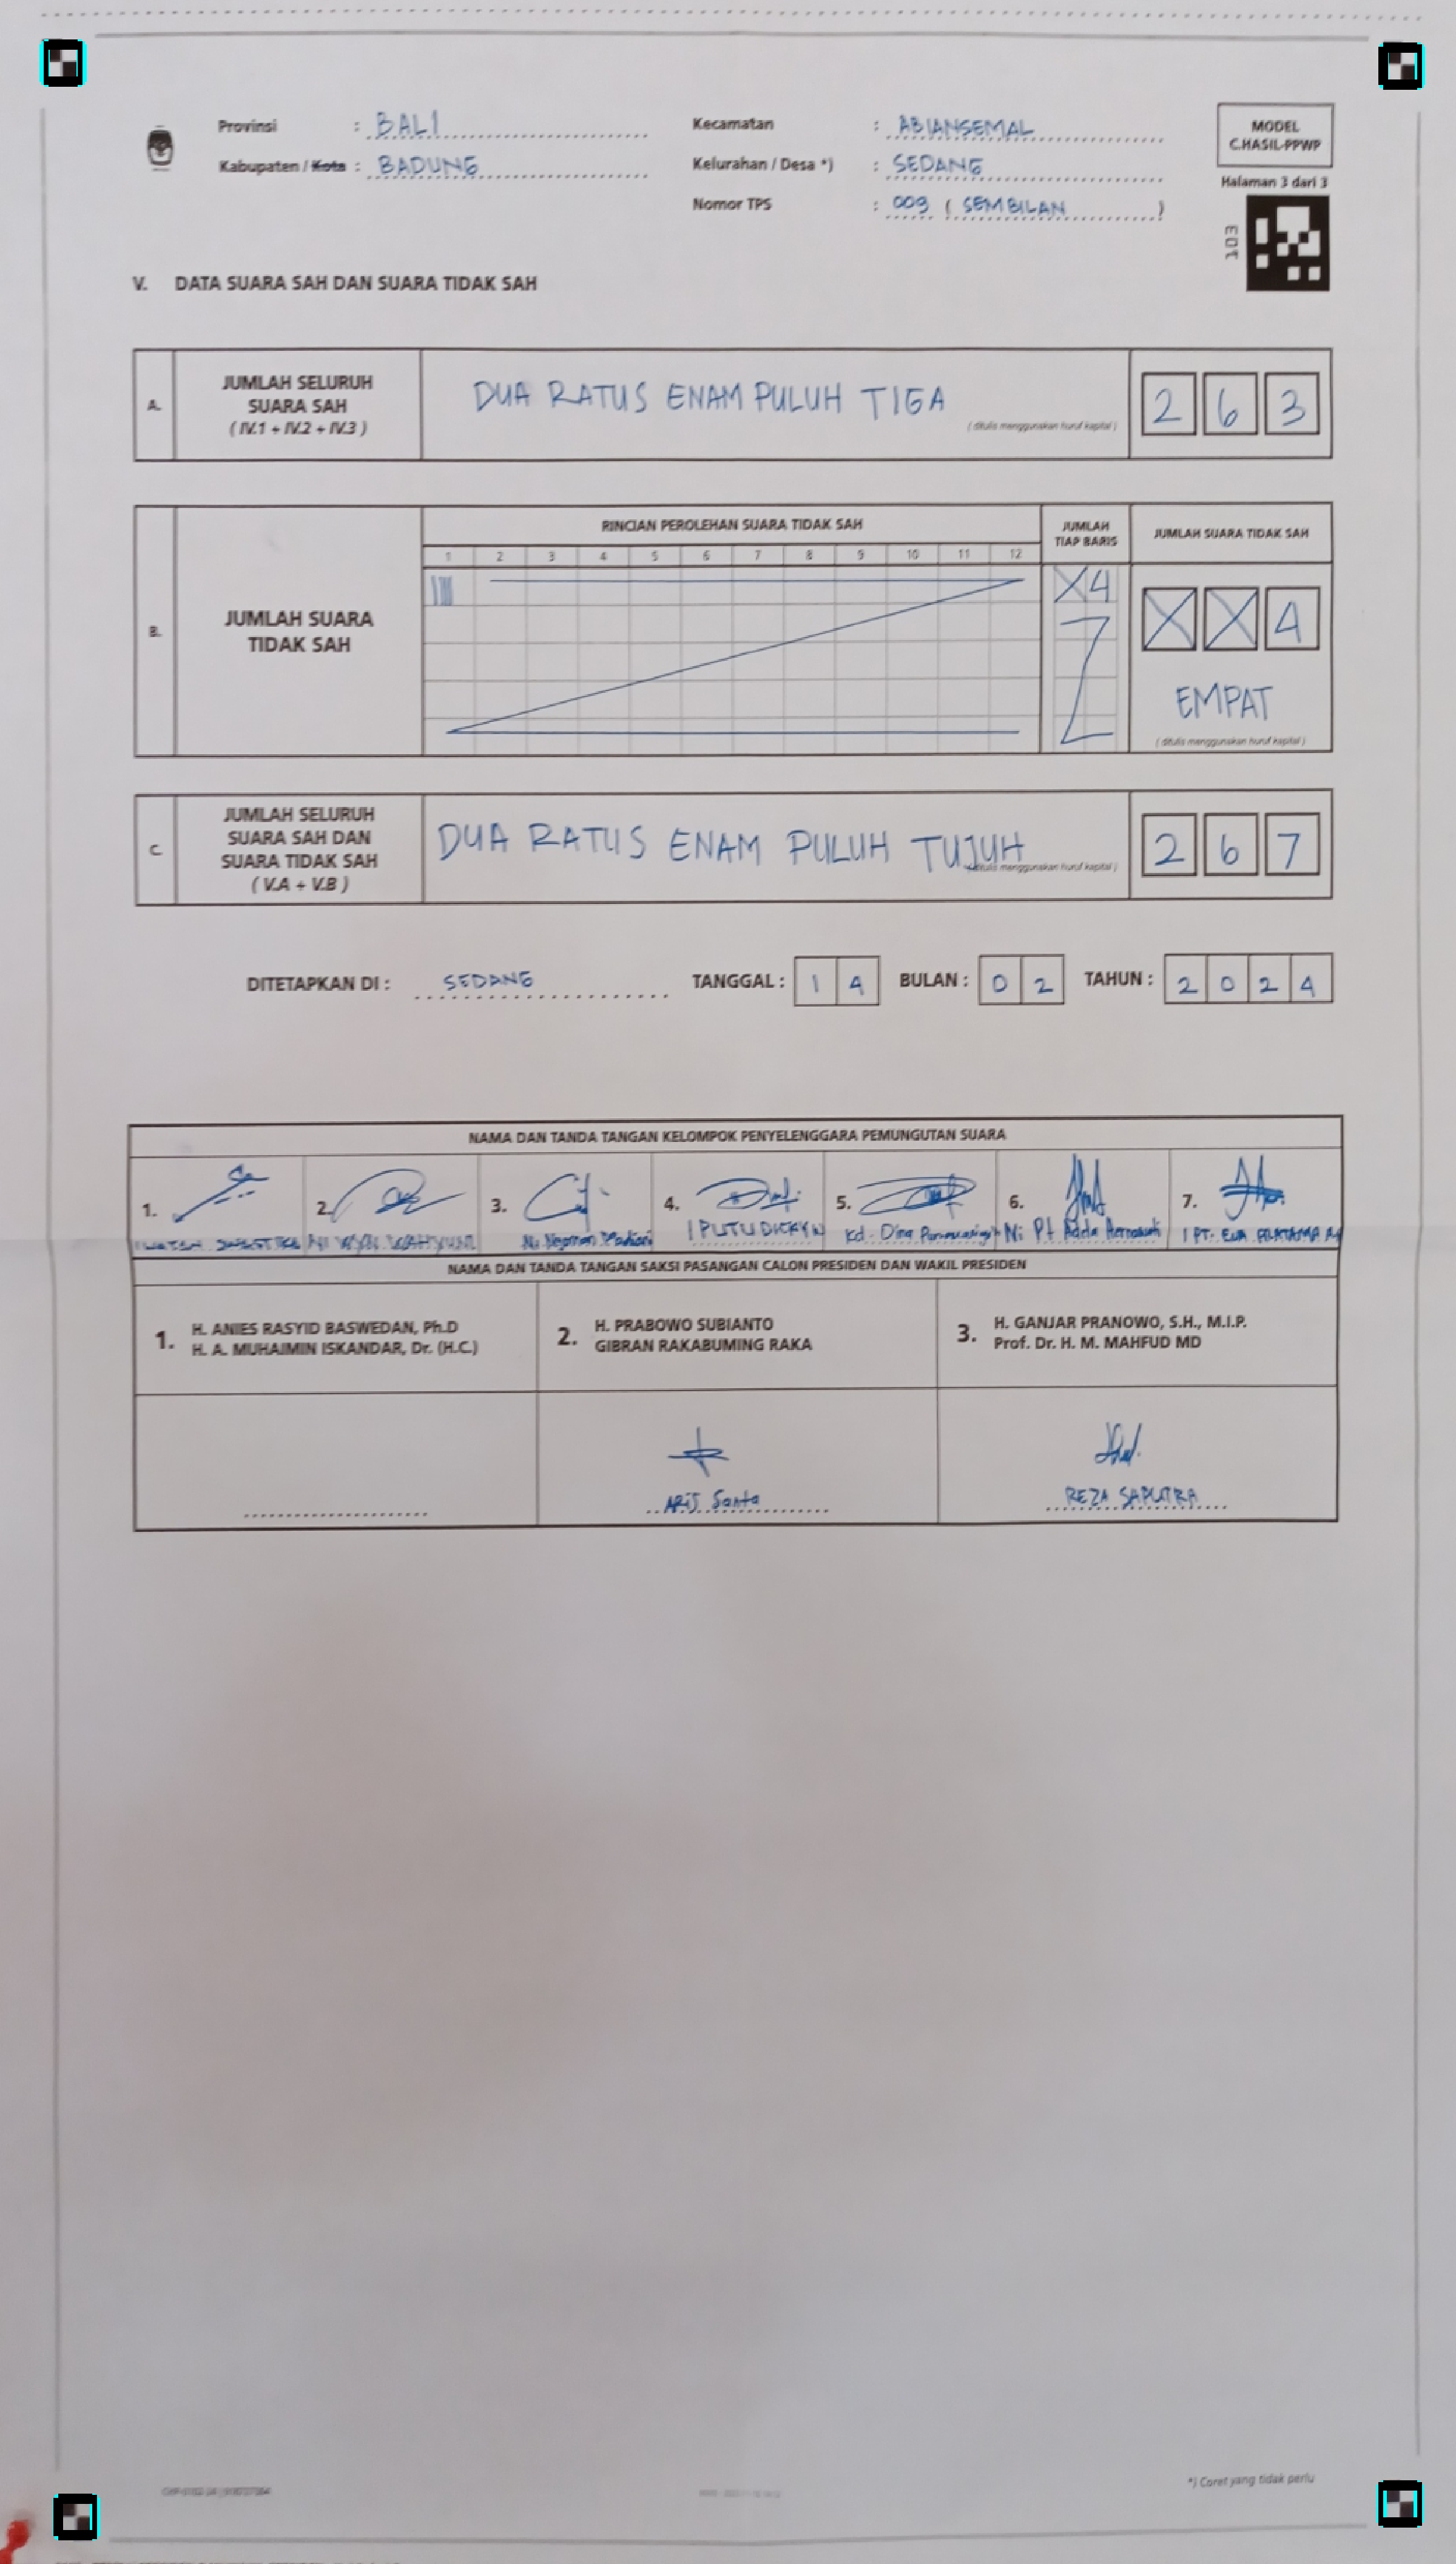 Provinsi : BALI
Kabupaten / Kota : BADUNG
Kecamatan : ABIANSEMAL
Kelurahan / Desa *) : SEDANG
Nomor TPS : 009 ( SEMBILAN )
MODEL
C.HASIL-PPWP
Halaman 3 dari 3
103
V. DATA SUARA SAH DAN SUARA TIDAK SAH
A. JUMLAH SELURUH SUARA SAH ( IV.1 + IV.2 + IV.3 )
DUA RATUS ENAM PULUH TIGA
( ditulis menggunakan huruf kapital )
2 6 3
B. JUMLAH SUARA TIDAK SAH
RINCIAN PEROLEHAN SUARA TIDAK SAH
1 2 3 4 5 6 7 8 9 10 11 12
JUMLAH TIAP BARIS
X4
JUMLAH SUARA TIDAK SAH
X X 4
EMPAT
( ditulis menggunakan huruf kapital )
C. JUMLAH SELURUH SUARA SAH DAN SUARA TIDAK SAH ( V.A + V.B )
DUA RATUS ENAM PULUH TUJUH
( ditulis menggunakan huruf kapital )
2 6 7
DITETAPKAN DI : SEDANG TANGGAL : 1 4 BULAN : 0 2 TAHUN : 2 0 2 4
NAMA DAN TANDA TANGAN KELOMPOK PENYELENGGARA PEMUNGUTAN SUARA
1. 2. 3. 4. 5. 6. 7.
Ni Nyoman
I PUTU DICKY N
Kd. Dina
Ni Pt
I PT. EKA
NAMA DAN TANDA TANGAN SAKSI PASANGAN CALON PRESIDEN DAN WAKIL PRESIDEN
1. H. ANIES RASYID BASWEDAN, Ph.D
H. A. MUHAIMIN ISKANDAR, Dr. (H.C.)
2. H. PRABOWO SUBIANTO
GIBRAN RAKABUMING RAKA
3. H. GANJAR PRANOWO, S.H., M.I.P.
Prof. Dr. H. M. MAHFUD MD
REZA SAPUTRA
*) Coret yang tidak perlu